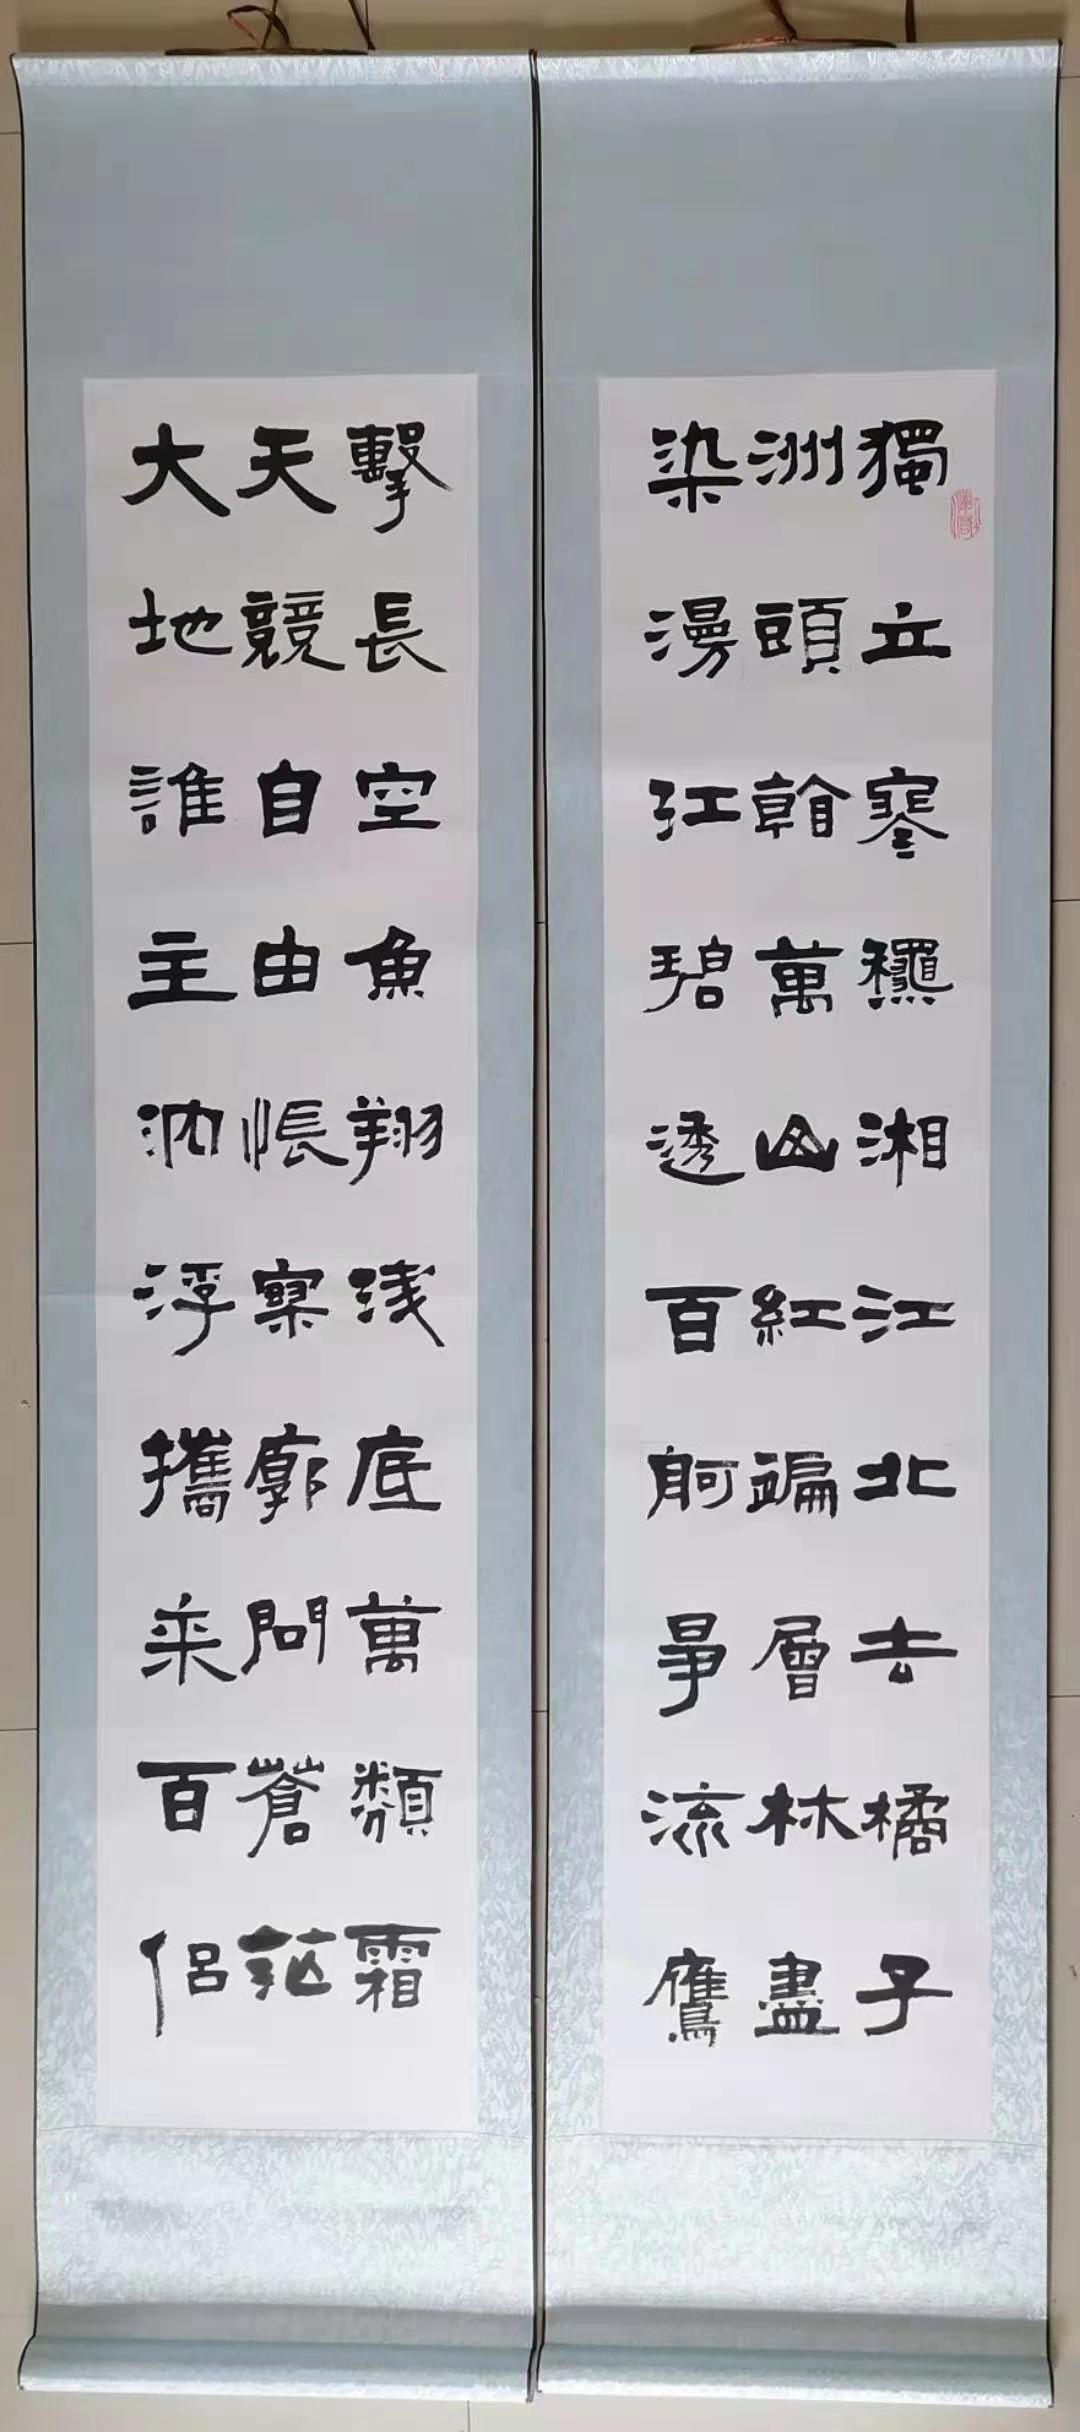 獨立寒龝湘江北去橘子
洲頭看萬山紅遍層林盡
染漫江碧透百舸爭流鷹
擊長空魚翔淺底萬類霜
天競自由悵寥廓問蒼茫
大地誰主沉浮攜來百侶